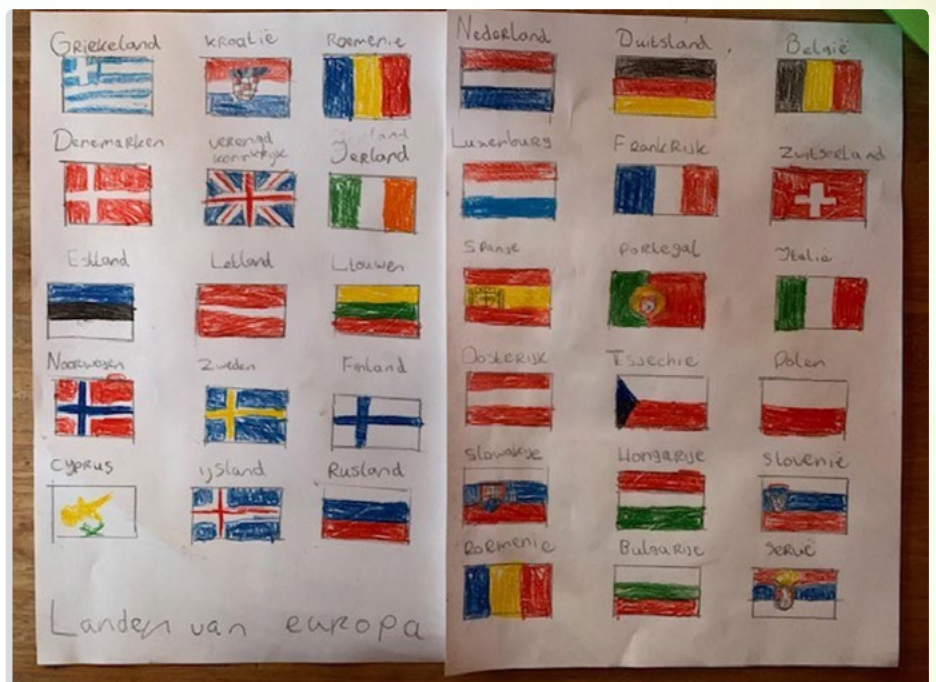 Griekeland
Kroatië
Roemenie
Denemarken
verengd
koninkrijk
Ierland
Estland
Letland
Litouwen
Noorwegen
Zweden
Finland
Cyprus
ijsland
Rusland
Landen van europa
Nederland
Duitsland
België
Luxenburg
FrankRijk
Zwitserland
Spanje
PORtegal
Italië
OosteRijk
Tsjechie
Polen
Slowakije
Hongarije
Slovenië
RoRmenie
Bulgarije
Servië